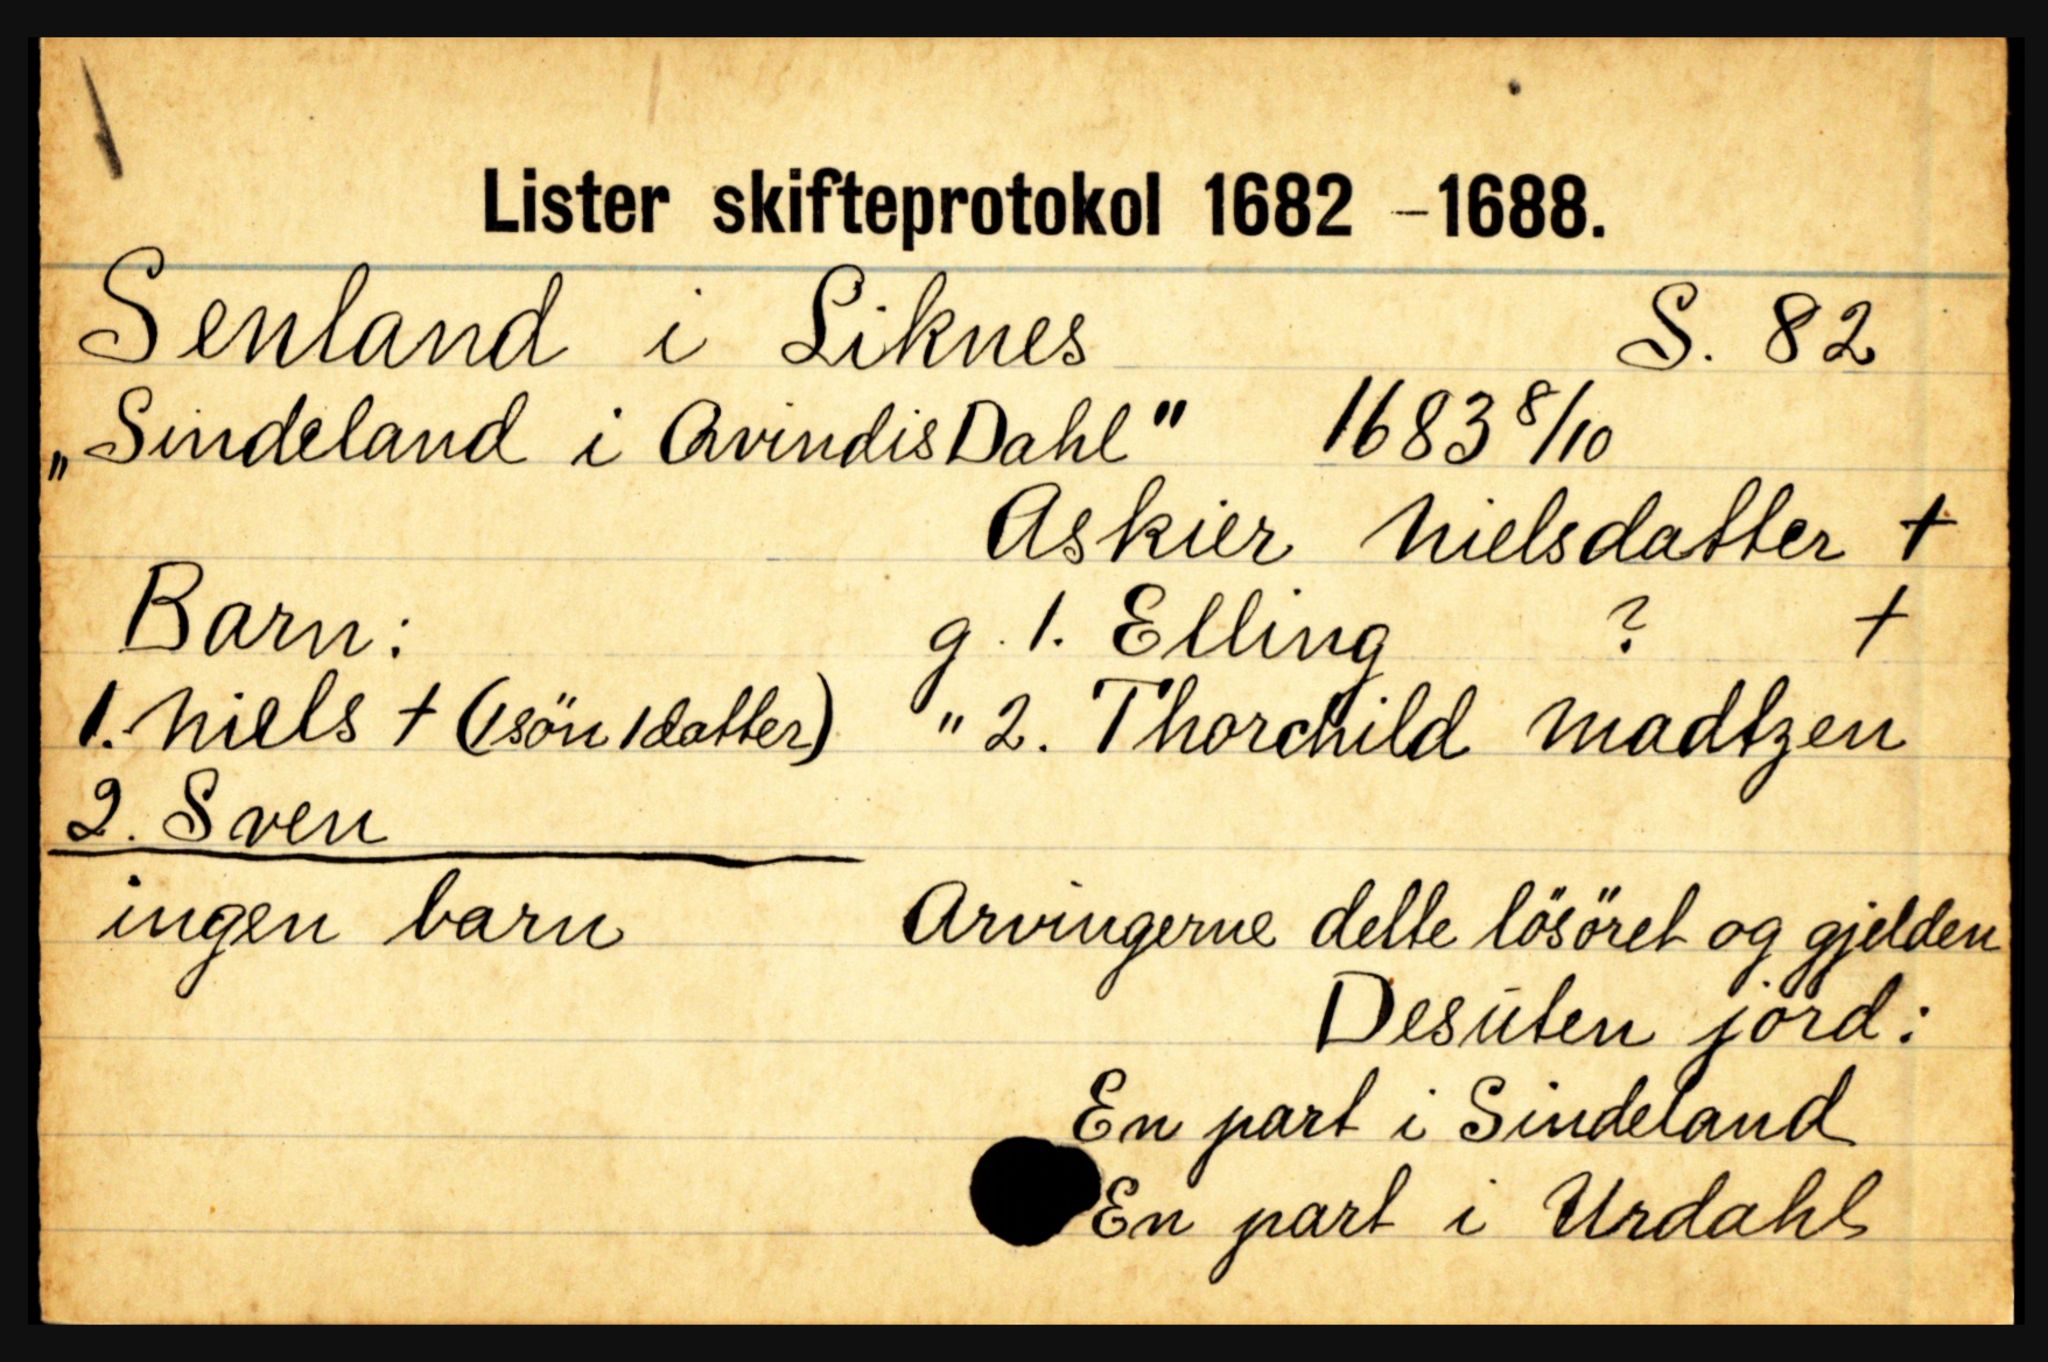 Lister skifteprotokol 1682 – 1688.
Senland i Liknes S. 82
„Sindeland i Qvindis Dahl" 1683 8/10
Askier Nielsdatter †
Barn: g. 1. Elling ? †
1. Niels † (1 sön 1 datter) " 2. Thorchild Madtzen
2. Sven
ingen barn Arvingerne delte lösöret og gjelden
Desuten jord:
En part i Sindeland
En part i Urdahl